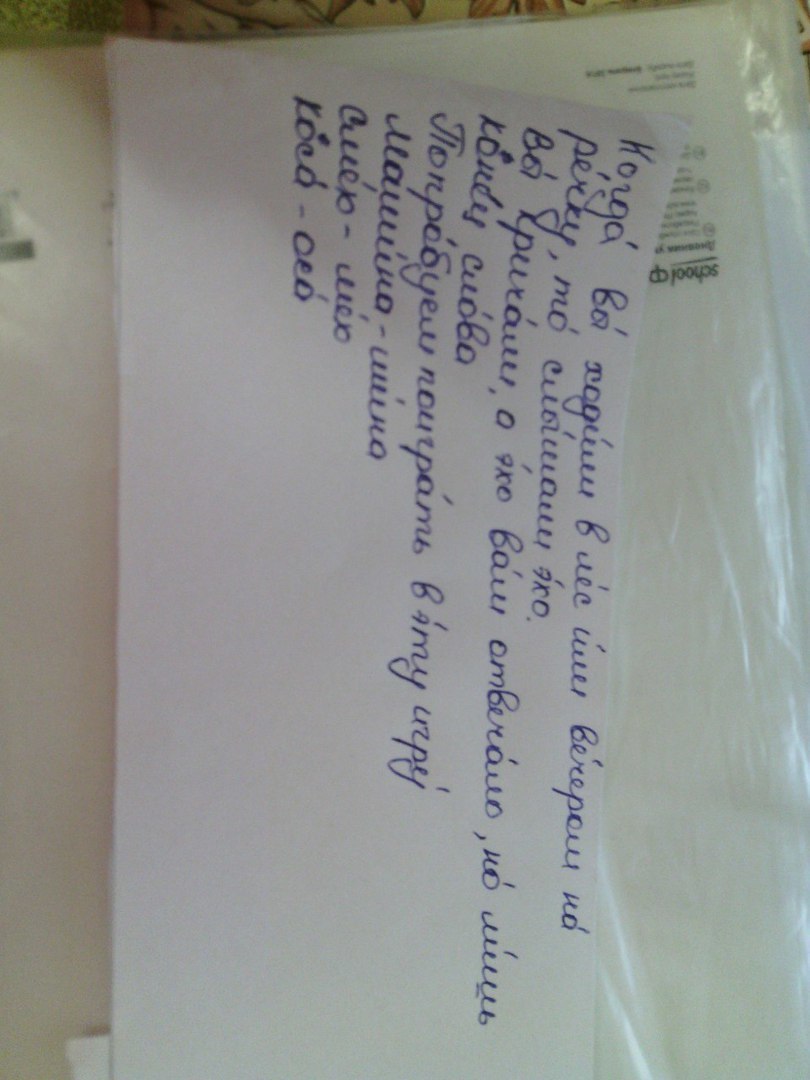 Когда́ вы́ ходи́ли в ле́с и́ли ве́чером на́
ре́чку, то́ слы́шали э́хо.
Вы́ крича́ли, а э́хо ва́м отвеча́ло, но́ ли́шь
сло́ва
Попро́буем поигра́ть в э́ту игру́
Маши́на - ши́на
Сме́ю - ме́ю
Коса́ - оса́
school